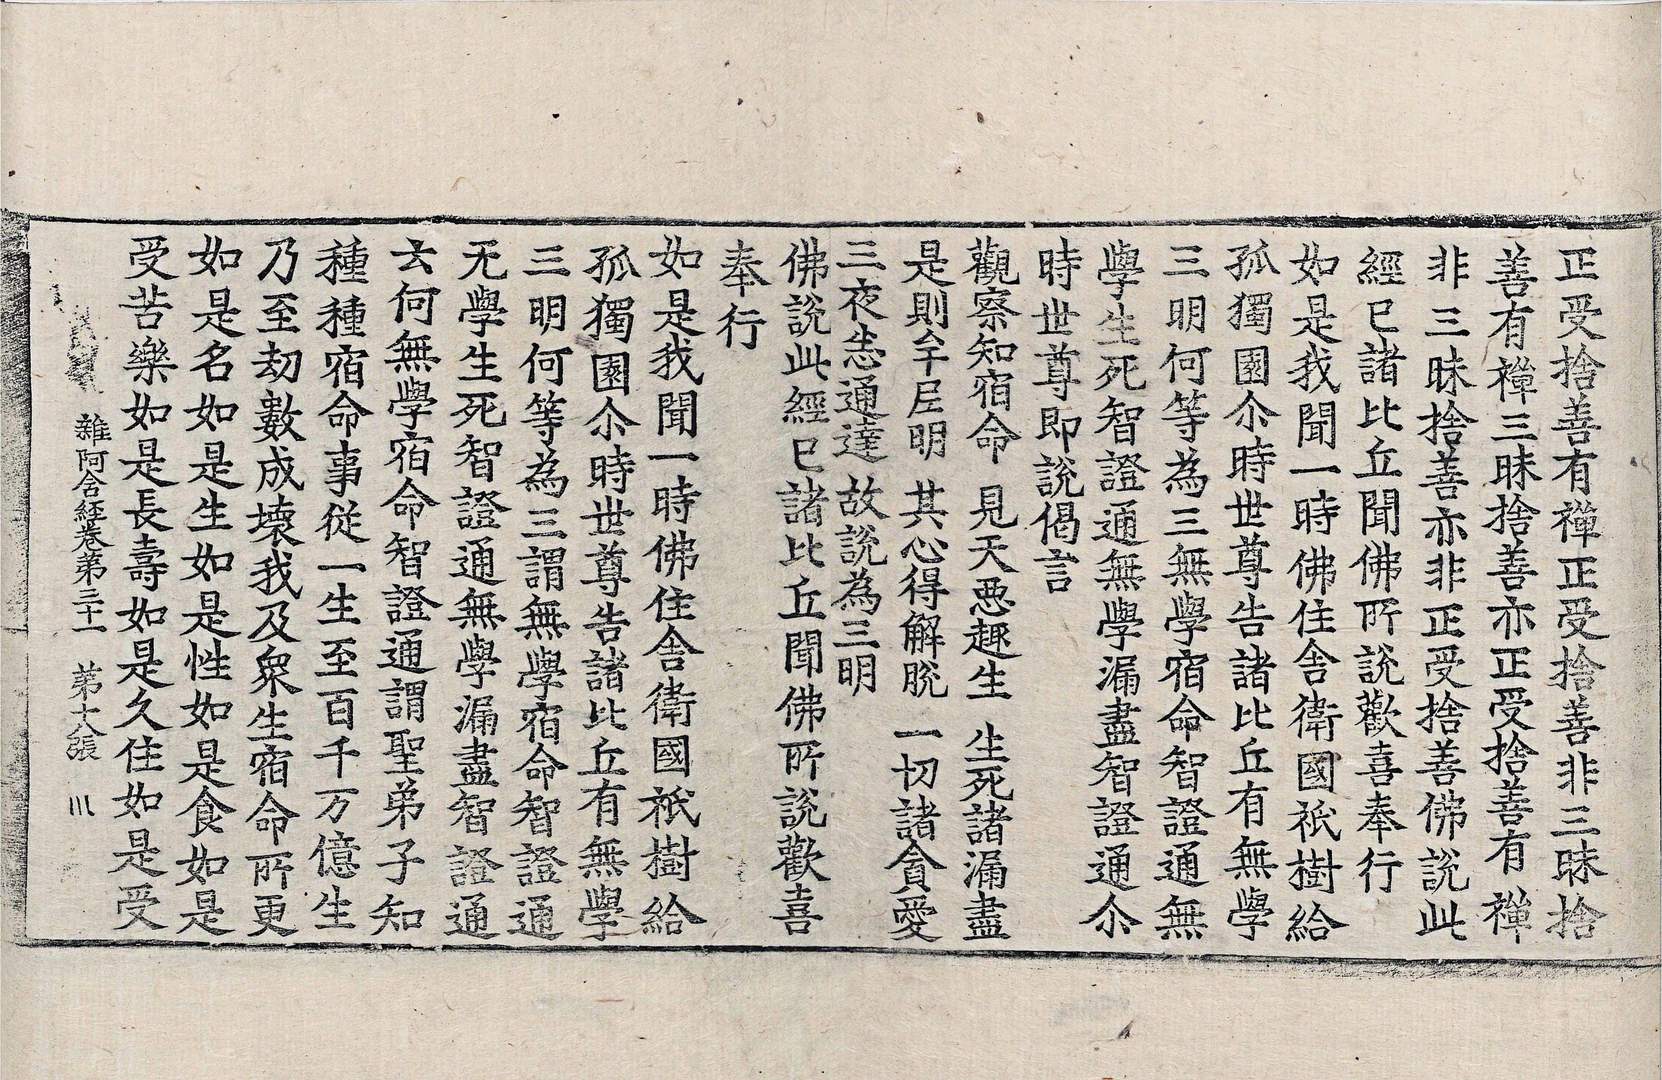 正受捨善有禅正受捨善非三昧捨
善有禅三昧捨善亦正受捨善有禅
非三昧捨善亦非正受捨善佛說此
經已諸比丘聞佛所說歡喜奉行
如是我聞一時佛住舍衛國祇樹給
孤獨園尒時世尊告諸比丘有無學
三明何等為三無學宿命智證通無
學生死智證通無學漏盡智證通尒
時世尊即說偈言
觀察知宿命 見天惡趣生 生死諸漏盡
是則牟尼明 其心得解脫 一切諸貪愛
三夜悉通達 故說為三明
佛說此經已諸比丘聞佛所說歡喜
奉行
如是我聞一時佛住舍衛國祇樹給
孤獨園尒時世尊告諸比丘有無學
三明何等為三謂無學宿命智證通
无學生死智證通無學漏盡智證通
云何無學宿命智證通謂聖弟子知
種種宿命事從一生至百千万億生
乃至劫數成壞我及衆生宿命所更
如是名如是生如是性如是食如是
受苦樂如是長壽如是久住如是受
雜阿含経卷第三十一 第十八張